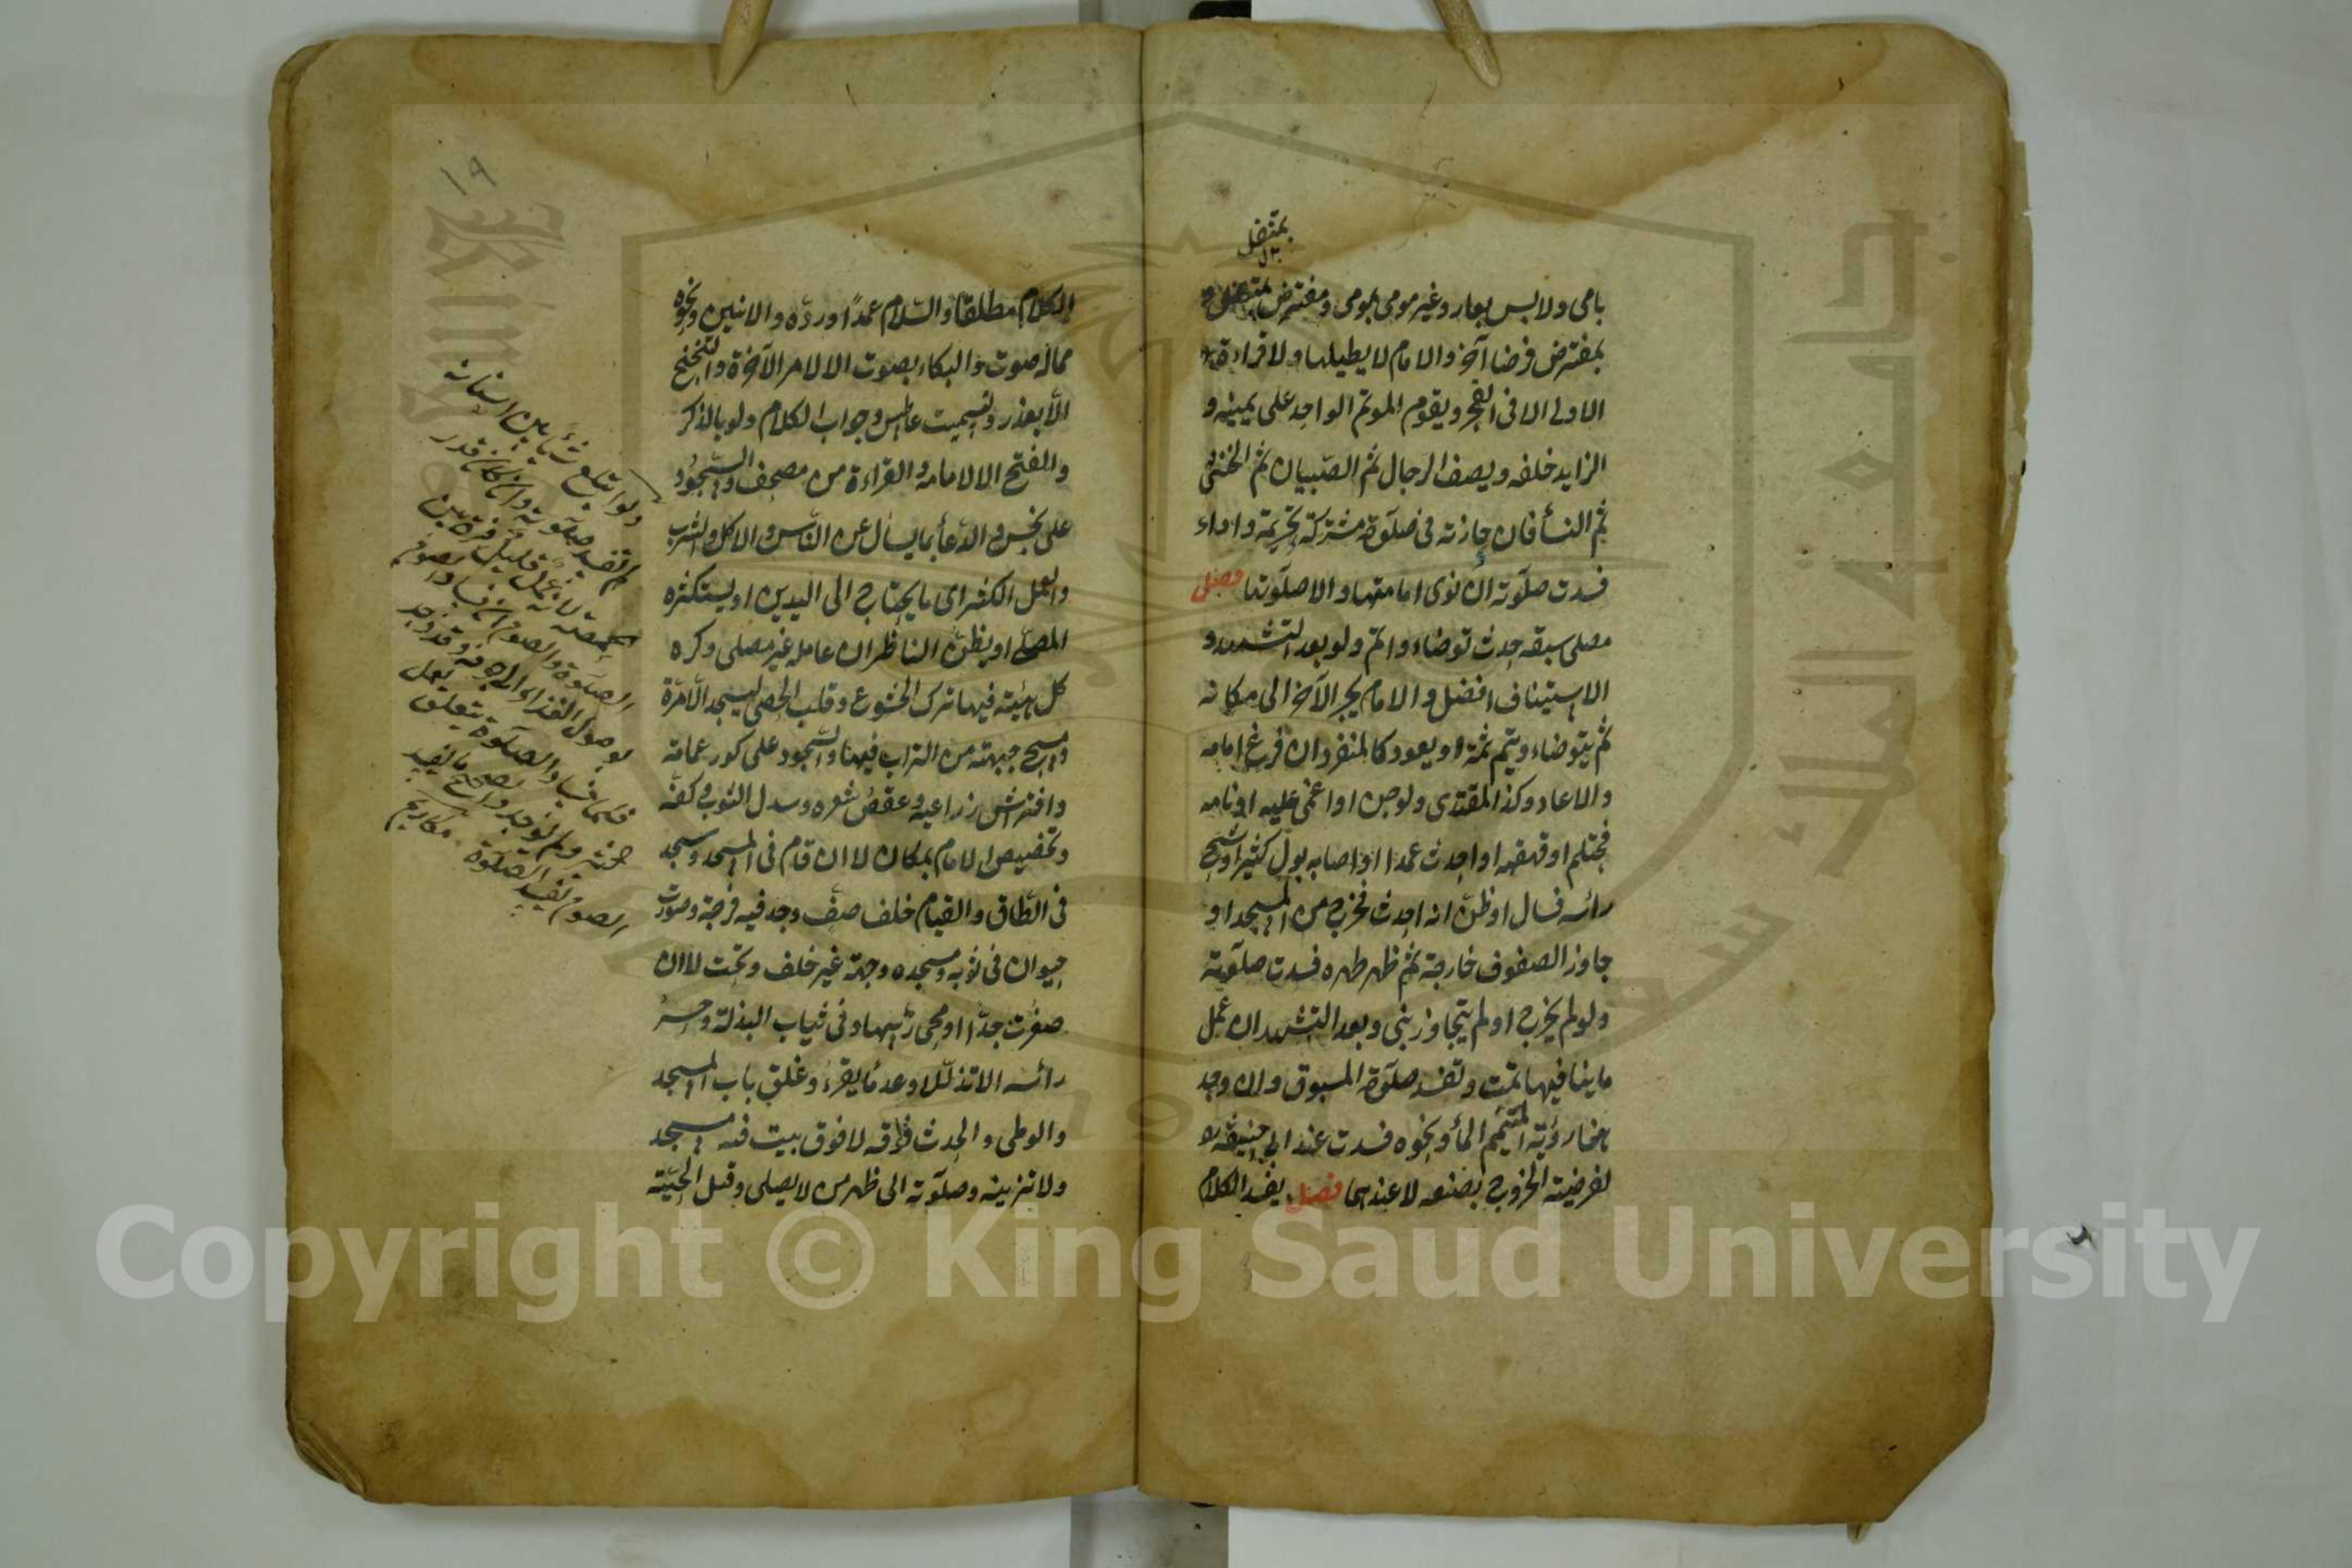 بمتنفل
بامى ولابس بعار وغير مومى بمومى ومفترض بمتنفل و
بمفترض فرضا آخر والامام لا يطيلها ولا قراءة
الاولى الا فى الفجر ويقوم الموتم الواحد على يمينه و
الزايد خلفه ويصف الرجال ثم الصبيان ثم الخنثى
ثم النسأ فان حازته فى صلوة مشتركة تحريمة واداء
فسدت صلوته ان نوى امامتها والا صلوتها فصل
مصلى سبقه حدث توضاء واتم ولو بعد التشهد و
الاستيناف افضل والامام يجر الآخر الى مكانه
ثم يتوضاء ويتم ثمة او يعود كالمنفرد ان فرغ امامه
والا عاد وكذا المقتدى ولو جن او اغمى عليه او نام
فاحتلم او قهقه او احدث عمدا او اصابه بول كثير او شج
رائسه فسال او ظن انه احدث فخرج من المسجد او
جاوز الصفوف خارجه ثم ظهر طهره فسدت صلوته
ولو لم يخرج او لم يتجاوز بنى وبعد التشهد ان عمل
ما ينافيها تمت وتفسد صلوة المسبوق وان وجد
هنا رؤية المتيمم المأ ونحوه فسدت عند ابى حنيفة
لفرضية الخروج بصنعه لا عندهما فصل يفسد الكلام
١٩
الكلام مطلقا والسلام عمدا ورده والانين ونحوه
مما له صوت والبكاء بصوت الا لامر الآخرة والتنحنح
الا بعذر وتسميت عاطس وجواب الكلام ولو بالذكر
والفتح الا لامامه والقراءة من مصحف والسجود
على نجس والدعأ بما يسأل عن الناس والاكل والشرب
والعمل الكثير اى ما يحتاج الى اليدين او يستكثره
المصلى او يظن الناظر ان عامله غير مصلى وكره
كل هيئة فيها ترك الخشوع وقلب الحصى ليسجد الا مرة
ومسح جبهته من التراب فيها والسجود على كور عمامة
وافتراش زراعيه وعقص شعره وسدل الثوب وكفه
وتخصيص الامام بمكان لا ان قام فى المسجد وسجد
فى الطاق والقيام خلف صف وجد فيه فرجة وصورت
حيوان فى ثوبه ومسجده وجهة غير خلف وتحت لا ان
صغرت جدا او محى رئسها وفى ثياب البذلة وحسر
رائسه الا تذللا وعد ما يقرء وغلق باب المسجد
والوطى والحدث فوقه لا فوق بيت فيه مسجد
ولا تزيينه وصلوته الى ظهر من لا يصلى وقتل الحية
ولو ابتلع شيأ بين اسنانه
لم تفسد صلوته وان كان قدر
حمصة لانه عمل قليل
الصلوة والصوم ان فساد الصوم
بوصول الغذاء الى جوفه وقد وجد
فاما فساد الصلوة يتعلق بعمل
كثير ولم يوجد
الصوم يفسد الصلوة